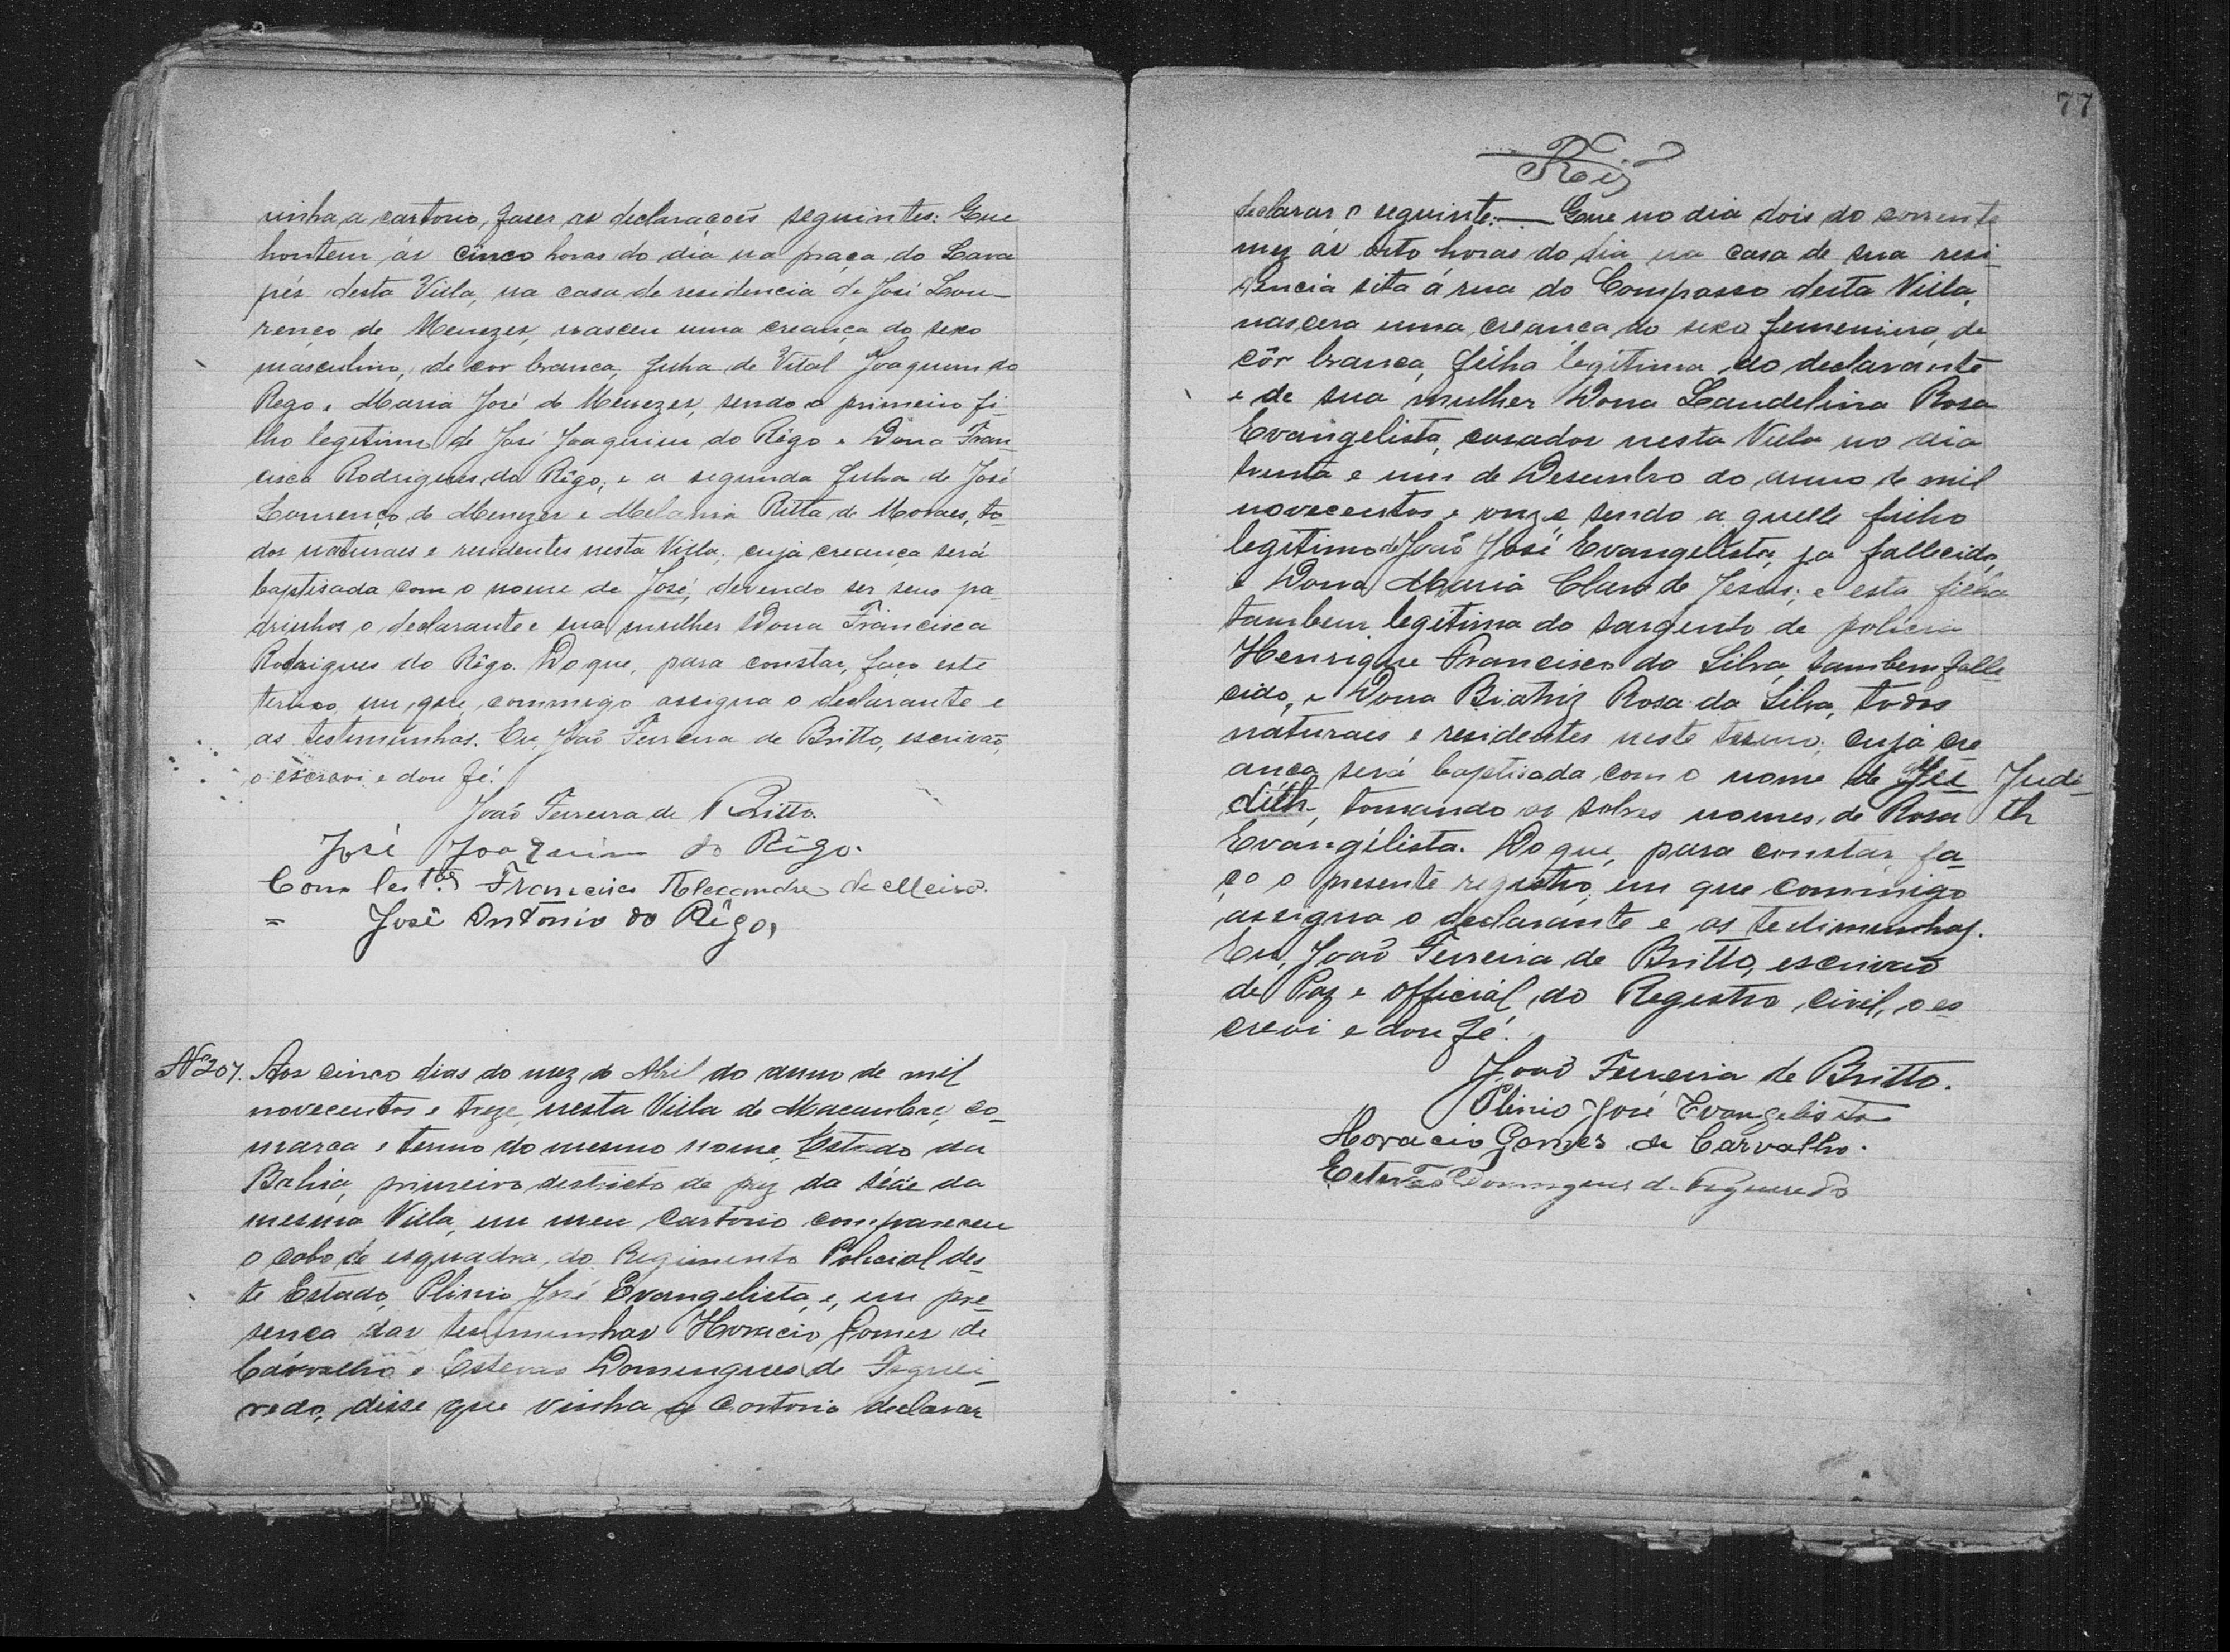 vinha a cartorio, faser as declarações seguintes: Que
hontem ás cinco horas do dia na praça do Lava
pés desta Villa, na casa de residencia de José Lou-
renço de Menezes, nasceu uma creança do sexo
masculino, de cor branca, filha de Vital Joaquim do
Rego e Maria José de Menezes, sendo o primeiro fi-
lho legitimo de José Joaquim do Rêgo e Dona Fran-
cisca Rodrigues do Rêgo, e a segunda filha de José
Lourenço de Menezes e Melania Ritta de Moraes, to-
dos naturaes e residentes nesta Villa, cuja creança será
baptisada com o nome de José, devendo ser seus pa-
drinhos o declarante e sua mulher Dona Francisca
Rodrigues do Rêgo. Do que, para constar, faço este
termo em que commigo assigna o declarante e
as testimunhas. Eu, João Ferreira de Britto, escrivão,
o escrevi e dou fé.
João Ferreira de Britto.
José Joaquim do Rêgo.
Com test.as Francisco Alexandre de
= José Antonio do Rêgo,
Nº 207. Aos cinco dias do mez de Abril do anno de mil
novecentos e treze, nesta Villa de Macaubas, co-
marca e termo do mesmo nome, Estado da
Bahia, primeiro destricto de paz da séde da
mesma Villa, em meu cartorio compareceu
o cabo de esquadra do Regimento Policial des-
te Estado, Plinio José Evangelista, e, em pre-
sença das testimunhas Horacio Gomes de
Carvalho e Estevão Domingues de Figuei-
redo, disse que vinha a Cartorio declarar
77
declarar o seguinte: — Que no dia dois do corrente
mez ás oito horas do dia na casa de sua resi-
dencia sita á rua do Compasso desta Villa,
nascera uma creança do sexo femenino, de
côr branca, filha legitima do declarante
e de sua mulher Dona Laudelina Rosa
Evangelista, casados nesta Villa no dia
trinta e um de Desembro do anno de mil
novecentos e onze, sendo aquelle filho
legitimo de João José Evangelista, ja fallecido,
e Dona Maria Clara de Jesus; e esta filha
tambem legitima do sargento de policia
Henrique Francisco da Silva, tambem falle
cido, e Dona Biatriz Rosa da Silva, todos
naturaes e residentes neste termo, cuja cre
ança será baptisada com o nome de Ju Judi-
dith, tomando os sobres nomes de Rosa th
Evangélista. Do que, para constar, fa-
ço o presente registro, em que commigo
assigna o declarante e as testimunhas.
Eu, João Ferreira de Britto, escrivão
de Paz e official do Registro Civil, o es
crevi e dou fé.
João Ferreira de Britto.
Plinio José Evangelista
Horacio Gomes de Carvalho.
Estevão Domingues de Figueredo